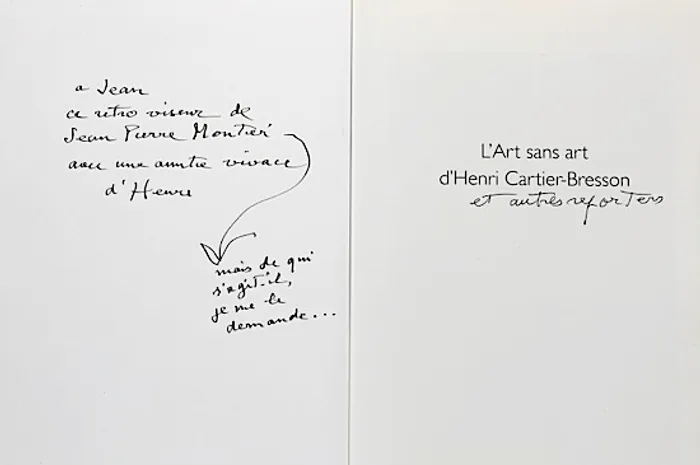 a Jean
ce retro viseur de
Jean Pierre Montier
avec une amitié vivace
d'Henri
mais de qui
s'agit-il,
je me le
demande...
L'Art sans art
d'Henri Cartier-Bresson
et autres reporters